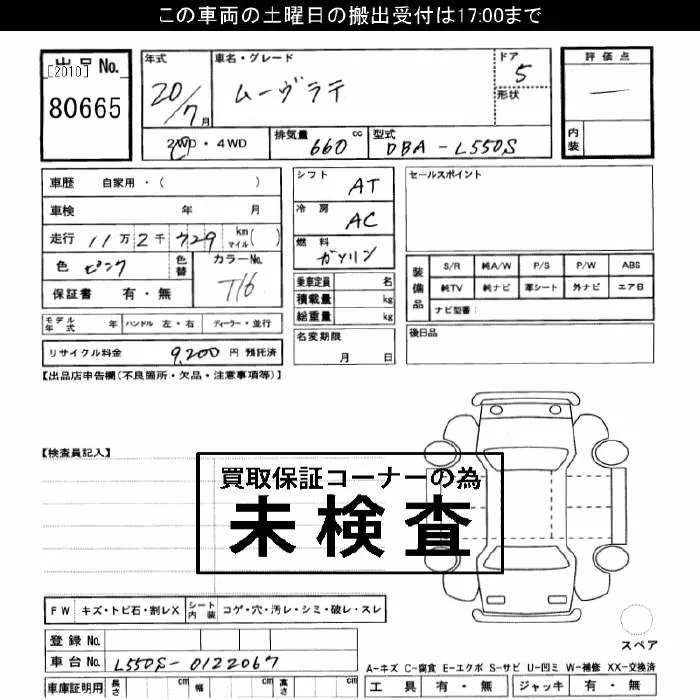 この車両の土曜日の搬出受付は17:00まで
出品 No.
[2010]
80665
年式
20/7月
車名・グレード
ムーヴラテ
ドア
5
形状
評価点
—
内装
2WD・4WD
排気量 660 cc
型式 DBA-L550S
車歴 自家用・( )
車検 年 月
走行 11万2千729 km マイル ( )
色 ピンク
色替
カラーNo.
T16
保証書 有・無
シフト
AT
冷房
AC
燃料
ガソリン
乗車定員 名
積載量 kg
総重量 kg
セールスポイント
装備品
S/R 純A/W P/S P/W ABS
純TV 純ナビ 革シート 外ナビ エアB
ナビ型番:
モデル年式 年 ハンドル 左・右 ディーラー・並行
名変期限
月 日
後日品
リサイクル料金 9,200 円 預託済
【出品店申告欄(不良箇所・欠品・注意事項等)】
【検査員記入】
買取保証コーナーの為
未検査
FW キズ・トビ石・割レX シート内装 コゲ・穴・汚レ・シミ・破レ・スレ
登録 No.
車台 No. L550S-0122067
車庫証明用 長さ cm 幅 cm 高さ cm
スペア
A-キズ C-腐食 E-エクボ S-サビ U-凹ミ W-補修 XX-交換済
工具 有・無 ジャッキ 有・無